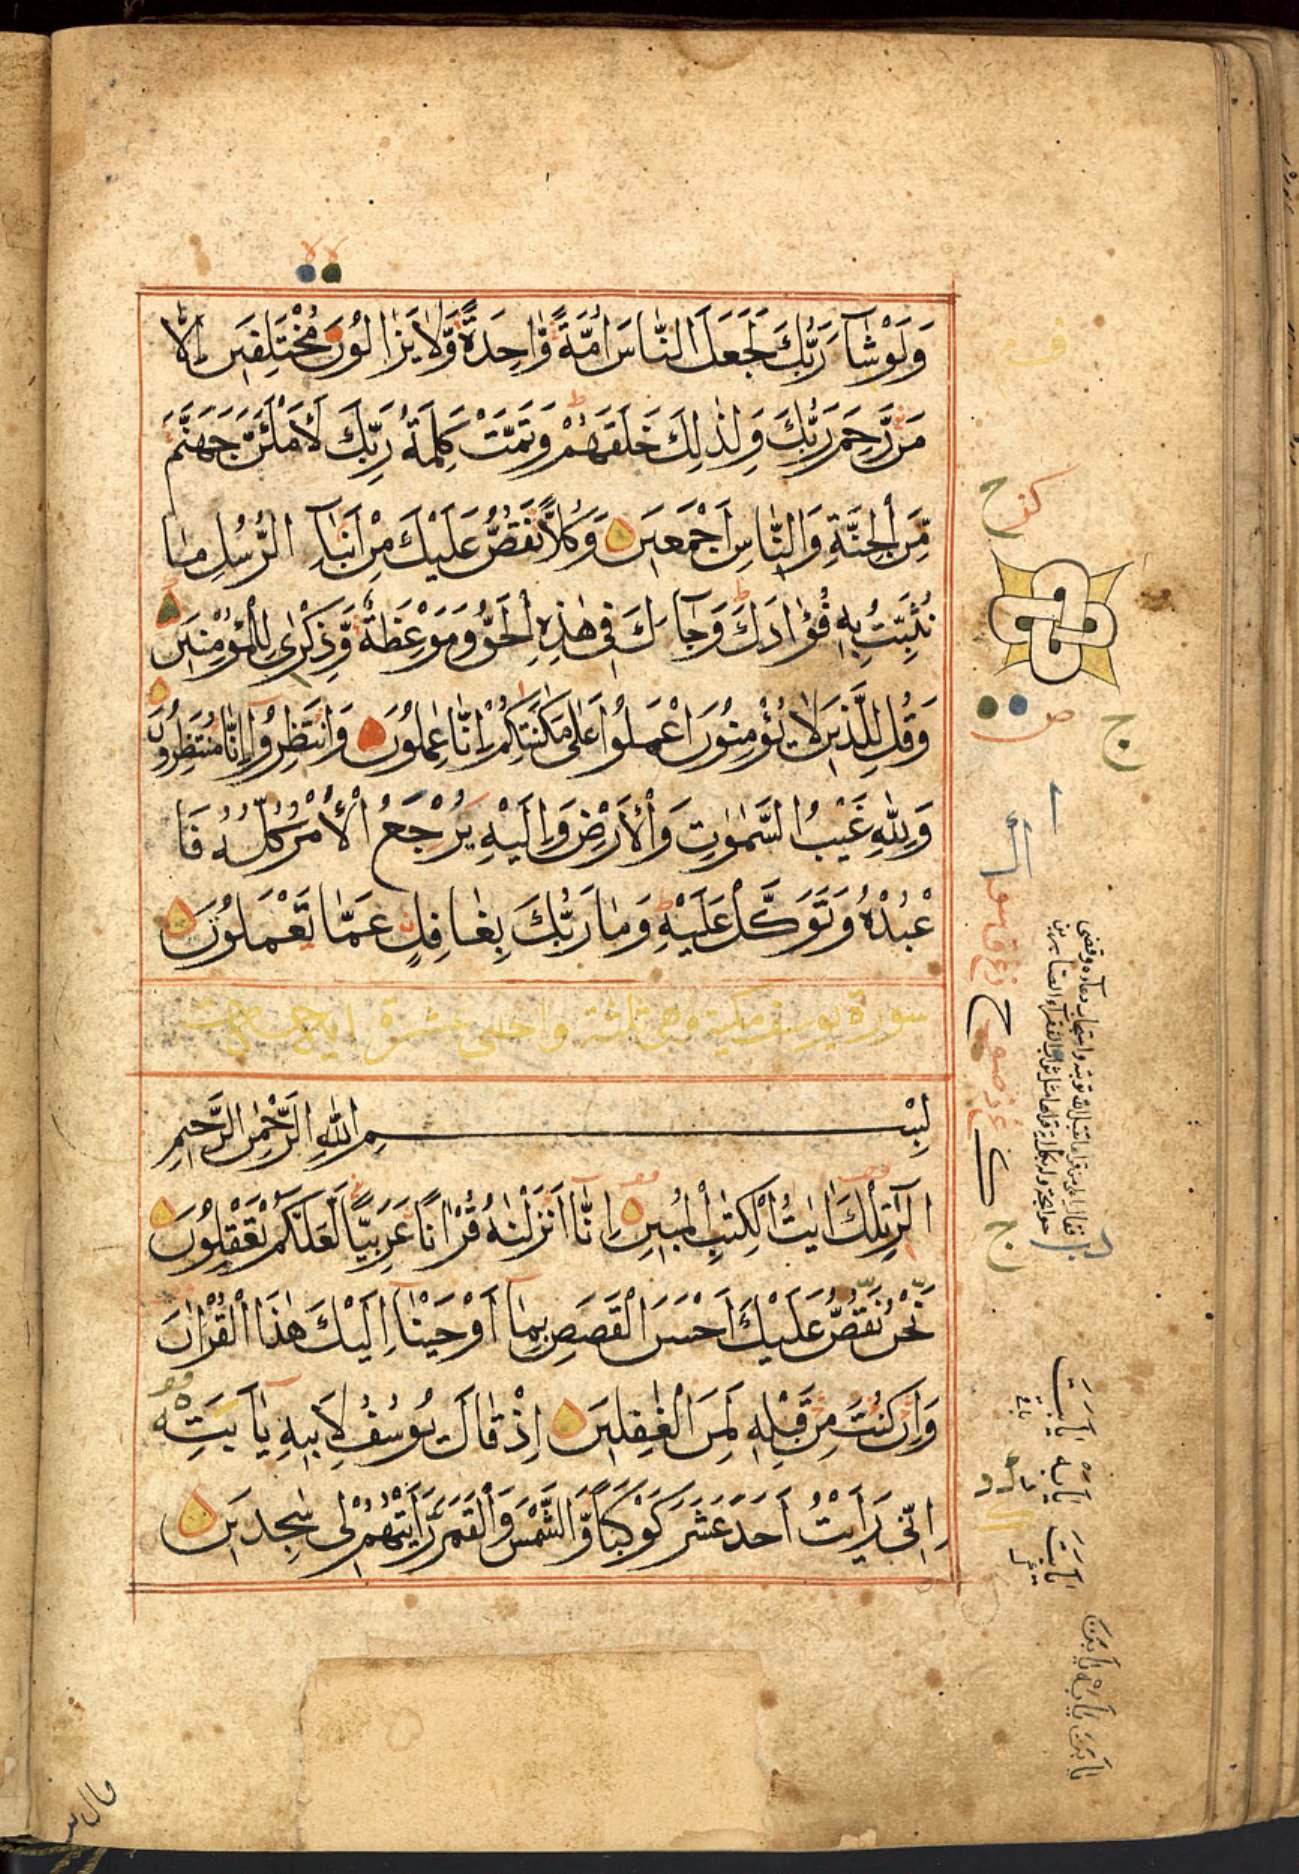 وَلَوْ شَآءَ رَبُّكَ لَجَعَلَ النَّاسَ أُمَّةً وَّاحِدَةً وَّلَا يَزَالُونَ مُخْتَلِفِينَ إِلَّا
مَن رَّحِمَ رَبُّكَ وَلِذٰلِكَ خَلَقَهُمْ وَتَمَّتْ كَلِمَةُ رَبِّكَ لَأَمْلَئَنَّ جَهَنَّمَ
مِنَ الْجِنَّةِ وَالنَّاسِ أَجْمَعِينَ وَكُلًّا نَّقُصُّ عَلَيْكَ مِنْ أَنْبَآءِ الرُّسُلِ مَا
نُثَبِّتُ بِهِ فُؤَادَكَ وَجَآءَكَ فِي هٰذِهِ الْحَقُّ وَمَوْعِظَةٌ وَّذِكْرٰى لِلْمُؤْمِنِينَ
وَقُل لِلَّذِينَ لَا يُؤْمِنُونَ اعْمَلُوا عَلٰى مَكَانَتِكُمْ إِنَّا عٰمِلُونَ وَانْتَظِرُوا إِنَّا مُنْتَظِرُونَ
وَلِلّٰهِ غَيْبُ السَّمٰوٰتِ وَالْأَرْضِ وَإِلَيْهِ يُرْجَعُ الْأَمْرُ كُلُّهُ فَا
عْبُدْهُ وَتَوَكَّلْ عَلَيْهِ وَمَا رَبُّكَ بِغَافِلٍ عَمَّا تَعْمَلُونَ
سورة يوسف مكية وهي مائة واحدى عشرة اية
بِسْمِ اللّٰهِ الرَّحْمٰنِ الرَّحِيمِ
الٓرٰ تِلْكَ اٰيٰتُ الْكِتٰبِ الْمُبِينِ إِنَّآ أَنْزَلْنٰهُ قُرْاٰنًا عَرَبِيًّا لَّعَلَّكُمْ تَعْقِلُونَ
نَحْنُ نَقُصُّ عَلَيْكَ أَحْسَنَ الْقَصَصِ بِمَآ أَوْحَيْنَآ إِلَيْكَ هٰذَا الْقُرْاٰنَ
وَإِن كُنْتَ مِن قَبْلِهِ لَمِنَ الْغٰفِلِينَ إِذْ قَالَ يُوسُفُ لِأَبِيهِ يَآ أَبَتِ
إِنِّي رَأَيْتُ أَحَدَ عَشَرَ كَوْكَبًا وَّالشَّمْسَ وَالْقَمَرَ رَأَيْتُهُمْ لِي سٰجِدِينَ